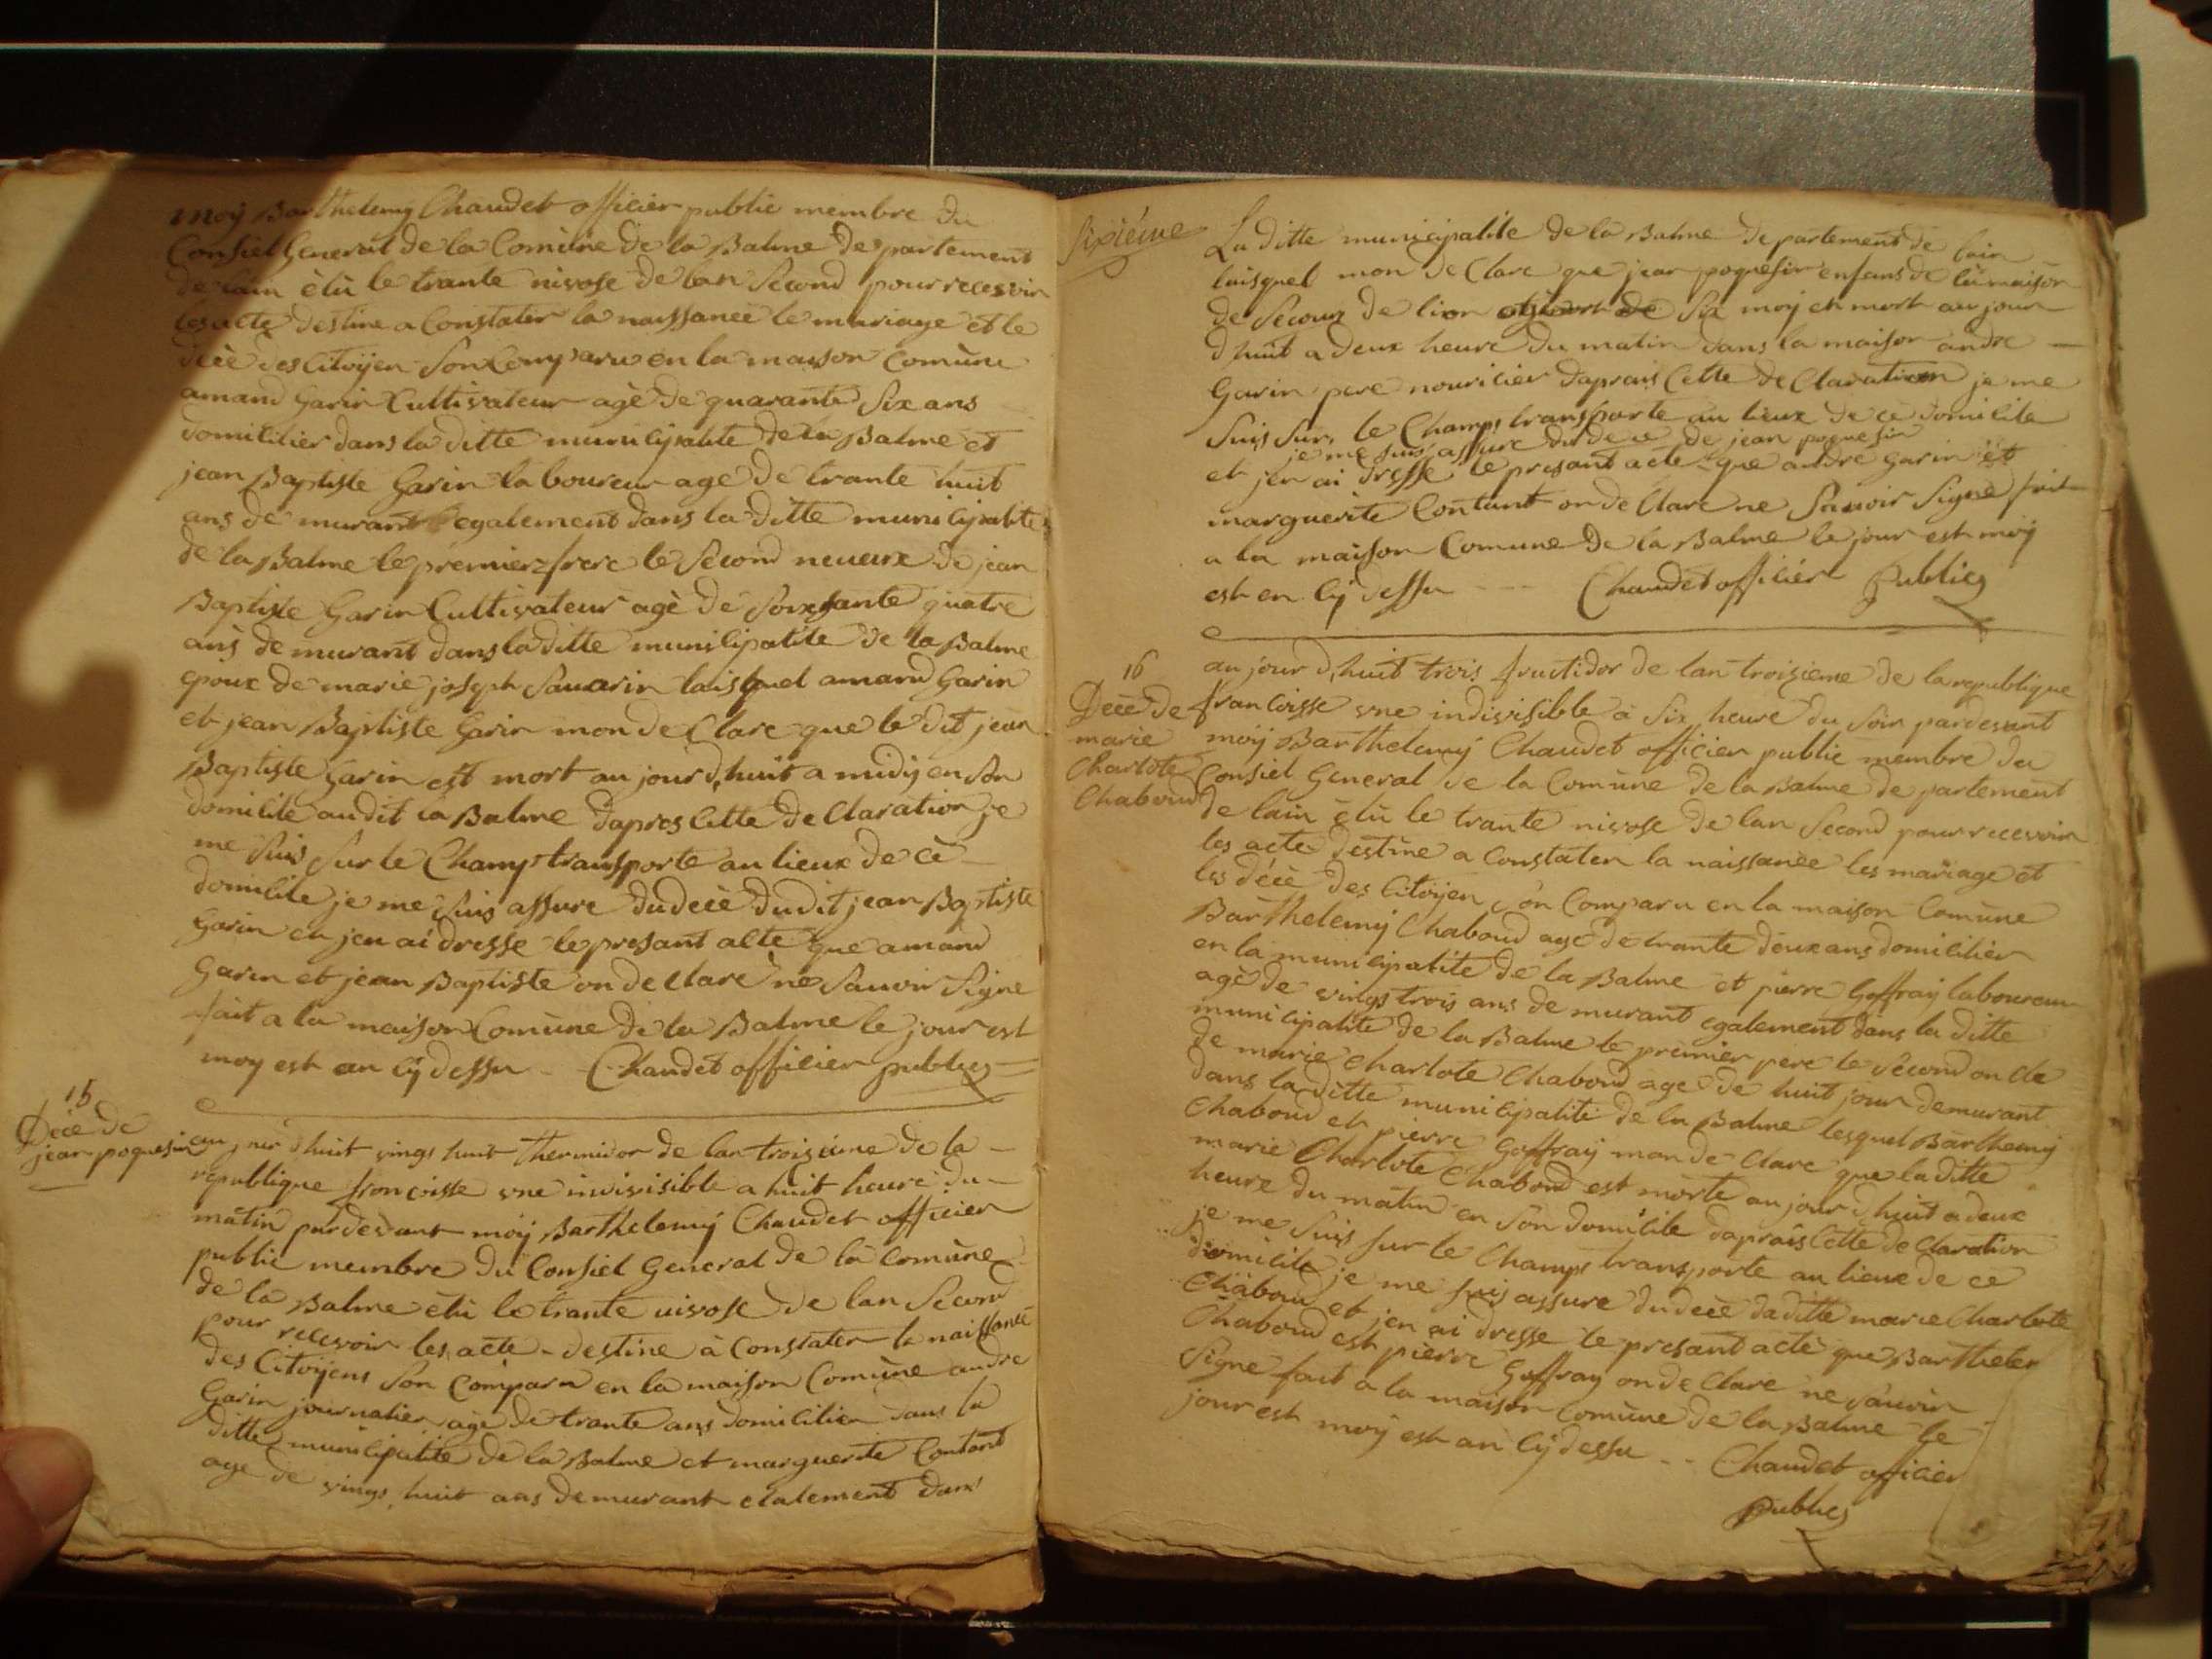 moÿ Barthelemy Chaudet officier public membre du
Consiel General de la Comùne de la Balme departement
de lain èlù le trante nivose de lan Second pour recevoir
les acte destine a Constater la naissancè le mariage et le
dècè des Citoÿen Son Comparu en la maison Comùne
amand Garin Cultivateur agè de quarante Six ans
domicilier dans la ditte municipalite de la Balme et
jean Baptiste Garin laboureur age de trante huit
ans de murant egalement dans la ditte municipalite
de la Balme le premier frere le Second neueux de jean
Baptiste Garin Cultivateur agè de Soixsante quatre
ans de murant dans la ditte municipalite de la Balme
epoux de marie joseph Sauarin laisquel amand Garin
et jean Baptiste Garin mon de Clare que le dit jean
Baptiste Garin est mort au jour d,huit a midÿ en Son
domicile audit la Balme dapres Cette de Claration je
me Suis Sur le Champ transporte au lieux de cè
domicile je me Suis assure du decè dudit jean Baptiste
Garin eu jen ai dresse le presant acte que amand
Garin et jean Baptiste on de Clarè ne Sauoir Signe
fait a la maison Comùne de la Balme le jour est
moy est an cÿ dessu - - Chaudet officier publics
15
Dècè de
jean poquesin
au jour d huit vings huit thermidor de lan troizieme de la
republique froncoisse vne indivisible a huit heure du
matin pardevant moÿ Barthelemÿ Chaudet officier
public membre du Consiel General de la Comùne
de la Balme èlu le trante nivose de lan Second
pour recevoir les acte destine à Constater la naissance
des Citoÿens Son Comparu en la maison Comùne andre
Garin journalier agè de trante ans domicilier dans la
ditte municipalite de la Balme et marguerite Contant
age de vings huit ans demurant elalement dans
Sixiéme
La ditte municipalite de la Balme departement de lain
laisquel mon de Clare que jean poquesin enfans de la maison
de Secour de lion Six moÿ eh mort au jour
d huit a deux heure du matin dans la maison andre
Garin pere nouricier daprais Cette de Claration je me
Suis Sur, le Champs transparte au lieux de ce domicile
je me suis assure du dece de jean poquesin
et jen ai dresse le presant acte que andre Garin et
marguerite Contant on de Clare ne Sauoir Signe fait
a la maison Comune de la Balme le jour est moÿ
est en cÿ dessu - - - Chaudet officier Publics
16
Decè de
marie
Charlote
Chaboud
au jour d,huit trois fructidor de lan troizieme de la republique
francoisse vne indivisible à Six heure du Soir pardevant
moÿ Barthelemÿ Chaudet officier public membre du
Consiel General de la Comùne de la Balme de partement
de lain èlù le trante nivose de lan Second pour recevoir
les acte destine a Constater la naissancee les mariage et
les dècè des Citoÿen Son Comparu en la maison Comùne
Barthelemÿ Chaboud agè de trante deux ans domicilier
en la municipalite de la Balme et pierre Goffraÿ laboureur
agè de vings trois ans de murant egalement dans la ditte
municipalite de la Balme le premier pere le Second oncle
de marie Charlote Chaboud age de huit jour demurant
dans la ditte municipalite de la Balme lesquel Barthemÿ
Chaboud et pierre Goffraÿ mon de Clare que la ditte
marie Charlote Chaboud est morte au jour d huit a deux
heure du matin en Son domicile daprais Cette de Claration
je me Suis sur le Champs transporte au lieux de ce
domicile je me suis assure du decè daditte marie Charlote
Chaboud et jen ai dresse le presant acte que Bartheler
Chaboud est pierre Goffray on de Clare ne Sauoir
Signe fait a la maison Comùne de la Balme le
jour est moÿ est an cÿ dessu - - Chaudet officier
Publics